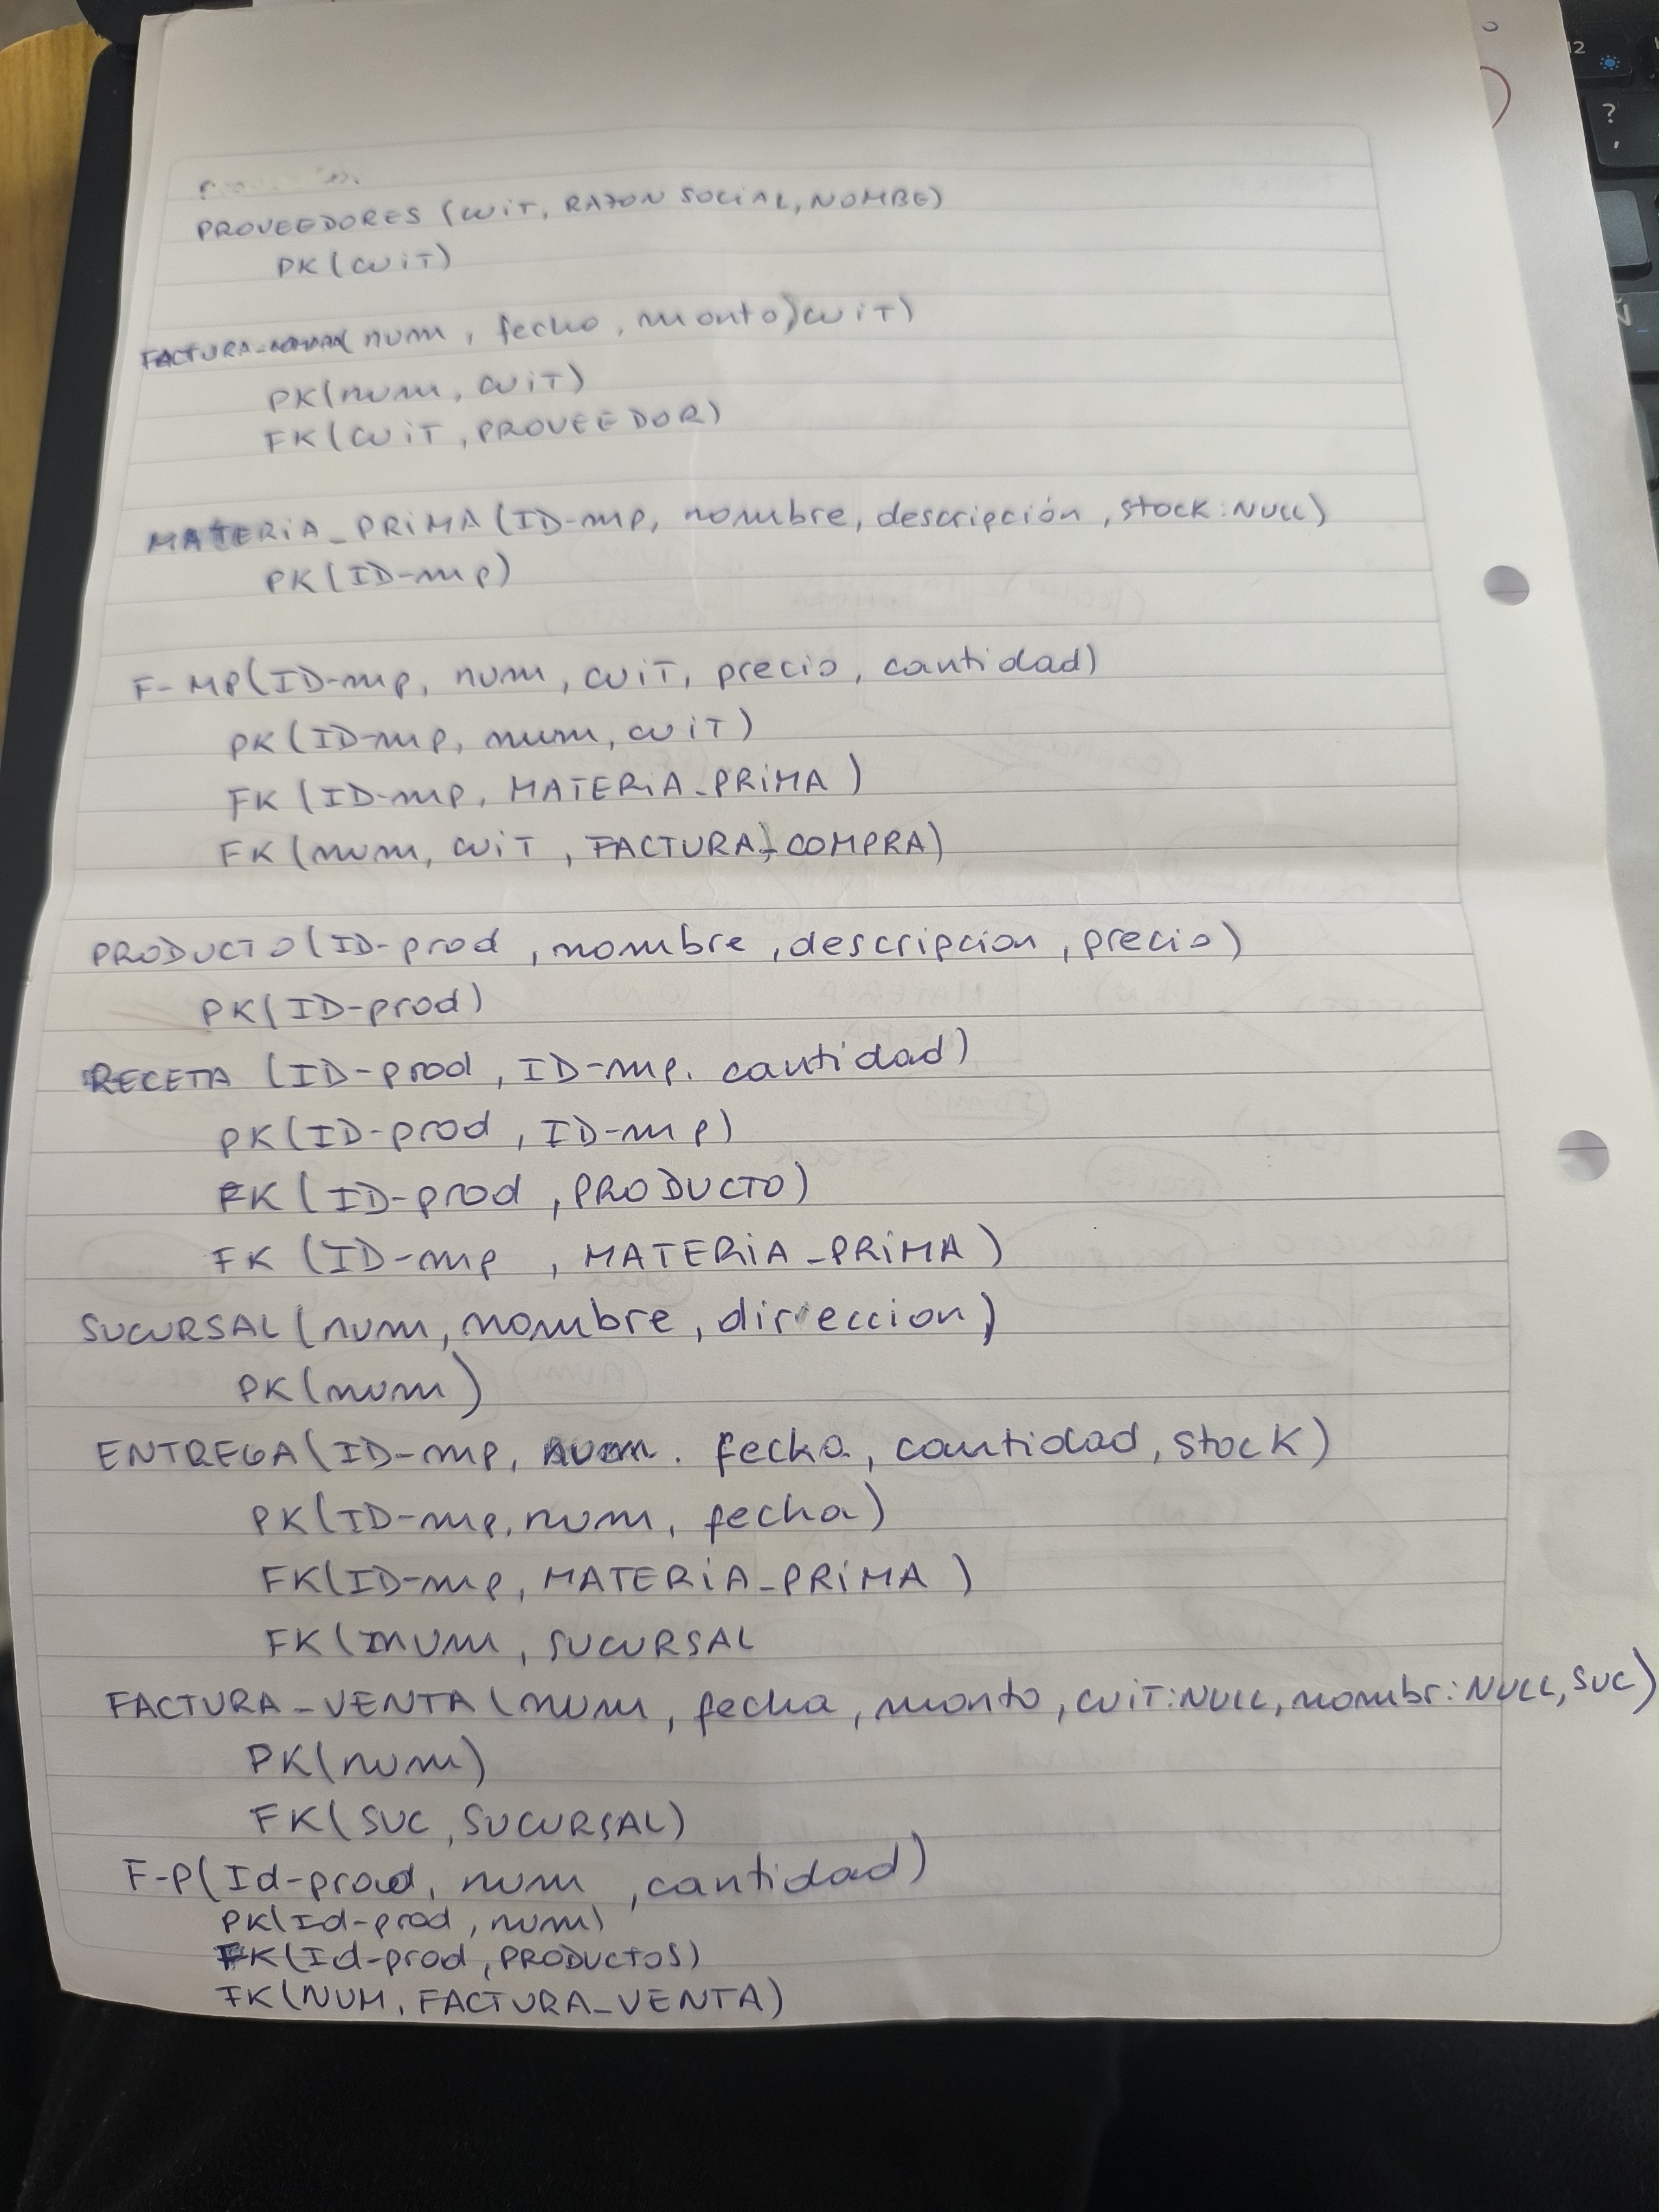 PROVEEDORES (CUIT, RAZON SOCIAL, NOMBE)
PK(CUIT)
FACTURA- (num, fecha, monto, CUIT)
PK(num, CUIT)
FK(CUIT, PROVEEDOR)
MATERIA_PRIMA(ID-mp, nombre, descripción, stock:NULL)
PK(ID-mp)
F-MP(ID-mp, num, CUIT, precio, cantidad)
PK(ID-mp, num, CUIT)
FK(ID-mp, MATERIA_PRIMA)
FK(num, CUIT, FACTURA_COMPRA)
PRODUCTO(ID-prod, nombre, descripcion, precio)
PK(ID-prod)
RECETA (ID-prod, ID-mp. cantidad)
PK(ID-prod, ID-mp)
FK(ID-prod, PRODUCTO)
FK (ID-mp, MATERIA_PRIMA)
SUCURSAL(num, nombre, direccion)
PK(num)
ENTREGA(ID-mp, num. fecha, cantidad, stock)
PK(ID-mp, num, fecha)
FK(ID-mp, MATERIA_PRIMA)
FK(num, SUCURSAL
FACTURA_VENTA(num, fecha, monto, CUIT:NULL, nombr:NULL, SUC)
PK(num)
FK(SUC, SUCURSAL)
F-P(Id-prod, num, cantidad)
PK(Id-prod, num)
FK(Id-prod, PRODUCTOS)
FK(NUM, FACTURA_VENTA)